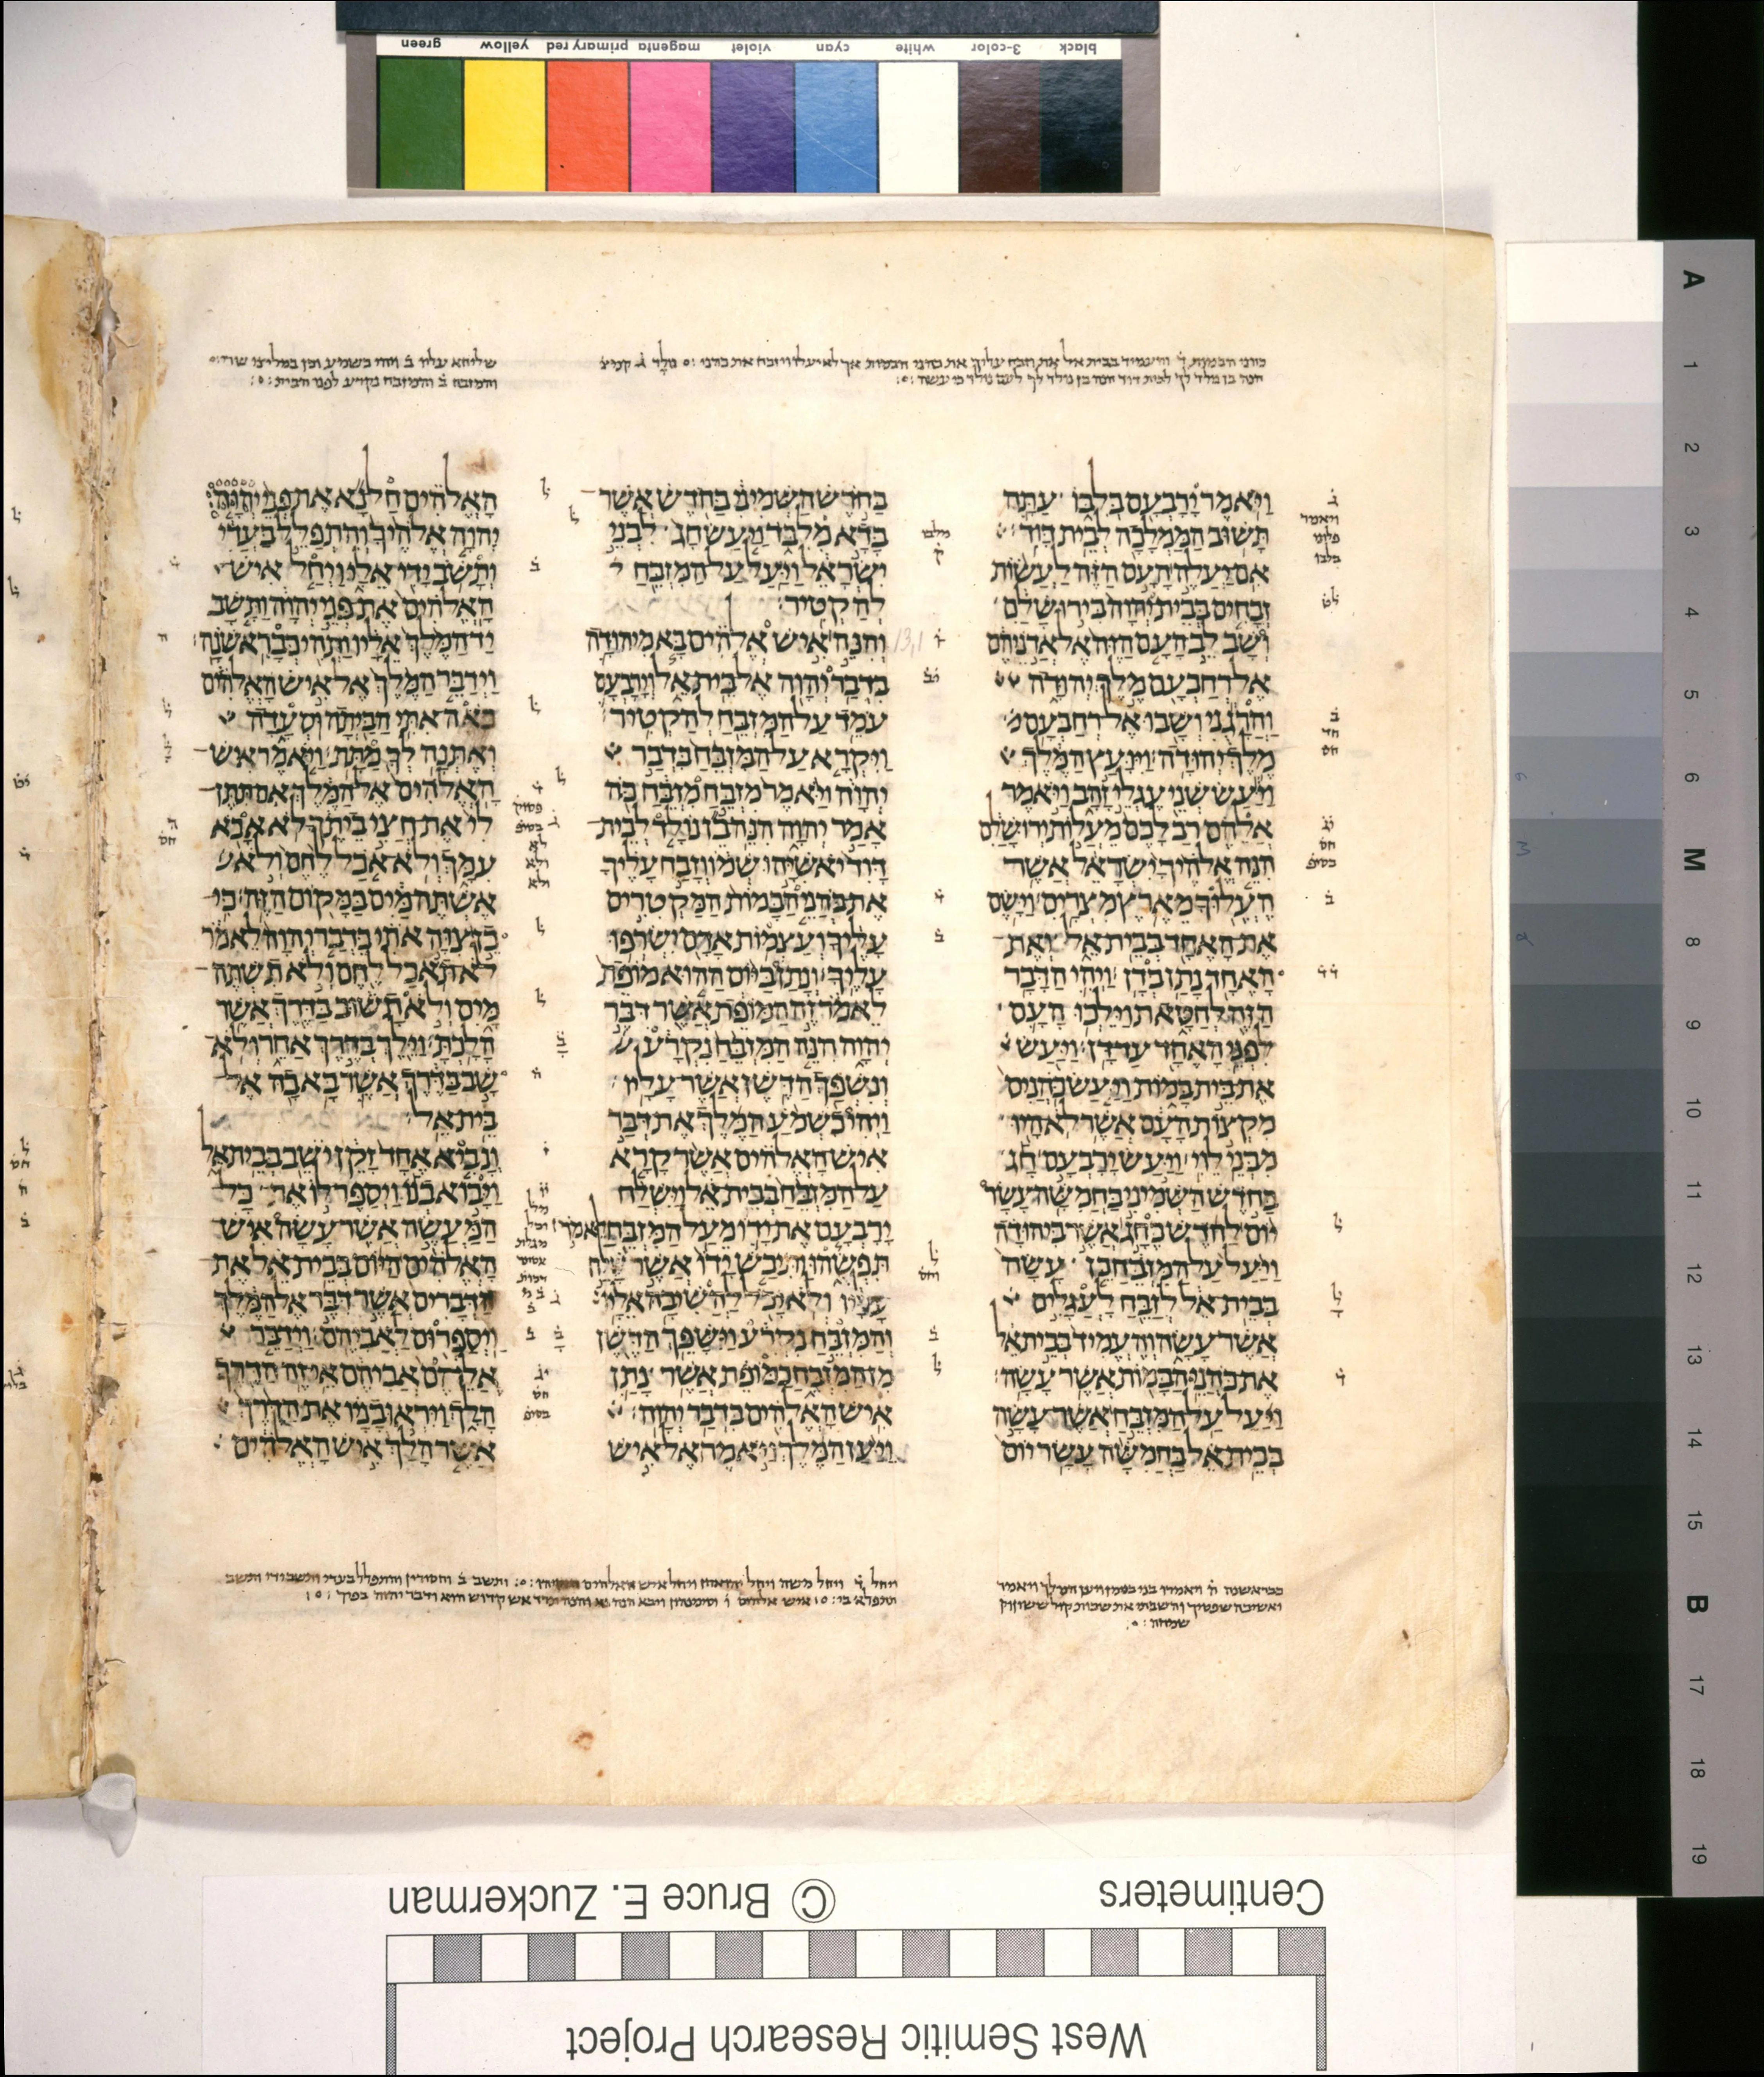 green yellow primary red magenta violet cyan white 3-color black
כהני הבמות ד והעמיד בבית אל את וזבח עליך את כהני הבמות אך לא יעלו ויזבח את כהני נולד ג קמיצ
הנה בן נולד לך לבית דוד הנה בן נולד לך לעם נולד כי עשה
והמזבח ב והמזבח נקרע לפני הבית
ויאמר ירבעם בלבו עתה
תשוב הממלכה לבית דוד
אם יעלה העם הזה לעשות
זבחים בבית יהוה בירושלם
ושב לב העם הזה אל אדניהם
אל רחבעם מלך יהודה
והרגני ושבו אל רחבעם
מלך יהודה ויועץ המלך
ויעש שני עגלי זהב ויאמר
אלהם רב לכם מעלות ירושלם
הנה אלהיך ישראל אשר
העלוך מארץ מצרים וישם
את האחד בבית אל ואת
האחד נתן בדן ויהי הדבר
הזה לחטאת וילכו העם
לפני האחד עד דן ויעש
את בית במות ויעש כהנים
מקצות העם אשר לא היו
מבני לוי ויעש ירבעם חג
בחדש השמיני בחמשה עשר
יום לחדש כחג אשר ביהודה
ויעל על המזבח כן עשה
בבית אל לזבח לעגלים
אשר עשה והעמיד בבית אל
את כהני הבמות אשר עשה
ויעל על המזבח אשר עשה
בבית אל בחמשה עשר יום
בחדש השמיני בחדש אשר
בדא מלבד ויעש חג לבני
ישראל ויעל על המזבח
להקטיר
והנה איש אלהים בא מיהודה
בדבר יהוה אל בית אל וירבעם
עמד על המזבח להקטיר
ויקרא על המזבח בדבר
יהוה ויאמר מזבח מזבח כה
אמר יהוה הנה בן נולד לבית
דוד יאשיהו שמו וזבח עליך
את כהני הבמות המקטרים
עליך ועצמות אדם ישרפו
עליך ונתן ביום ההוא מופת
לאמר זה המופת אשר דבר
יהוה הנה המזבח נקרע
ונשפך הדשן אשר עליו
ויהי כשמע המלך את דבר
איש האלהים אשר קרא
על המזבח בבית אל וישלח
ירבעם את ידו מעל המזבח לאמר
תפשהו ותיבש ידו אשר שלח
עליו ולא יכל להשיבה אליו
והמזבח נקרע וישפך הדשן
מן המזבח כמופת אשר נתן
איש האלהים בדבר יהוה
ויען המלך ויאמר אל איש
האלהים חל נא את פני יהוה
יהוה אלהיך והתפלל בעדי
ותשב ידי אלי ויחל איש
האלהים את פני יהוה ותשב
יד המלך אליו ותהי כבראשנה
וידבר המלך אל איש האלהים
באה אתי הביתה וסעדה
ואתנה לך מתת ויאמר איש
האלהים אל המלך אם תתן
לי את חצי ביתך לא אבא
עמך ולא אכל לחם ולא
אשתה מים במקום הזה כי
כן צוה אתי בדבר יהוה לאמר
לא תאכל לחם ולא תשתה
מים ולא תשוב בדרך אשר
הלכת וילך בדרך אחר ולא
שב בדרך אשר בא בה אל
בית אל
ונביא אחד זקן ישב בבית אל
ויבוא בנו ויספר לו את כל
המעשה אשר עשה איש
האלהים היום בבית אל את
הדברים אשר דבר אל המלך
ויספרום לאביהם וידבר
אלהם אביהם אי זה הדרך
הלך ויראו בניו את הדרך
אשר הלך איש האלהים
13,1
Centimeters
© Bruce E. Zuckerman
West Semitic Research Project
A 1 2 3 4 5 6 M 8 9 10 11 12 13 14 15 B 17 18 19